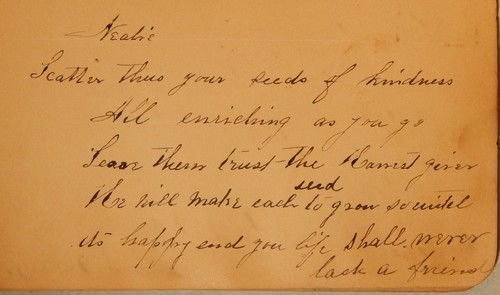 Nealie
Scatter thus your seeds of kindness
All enriching as you go
Leave them trust the Harvest giver
He will make each seed to grow so until
its happy end you life shall never
lack a friend